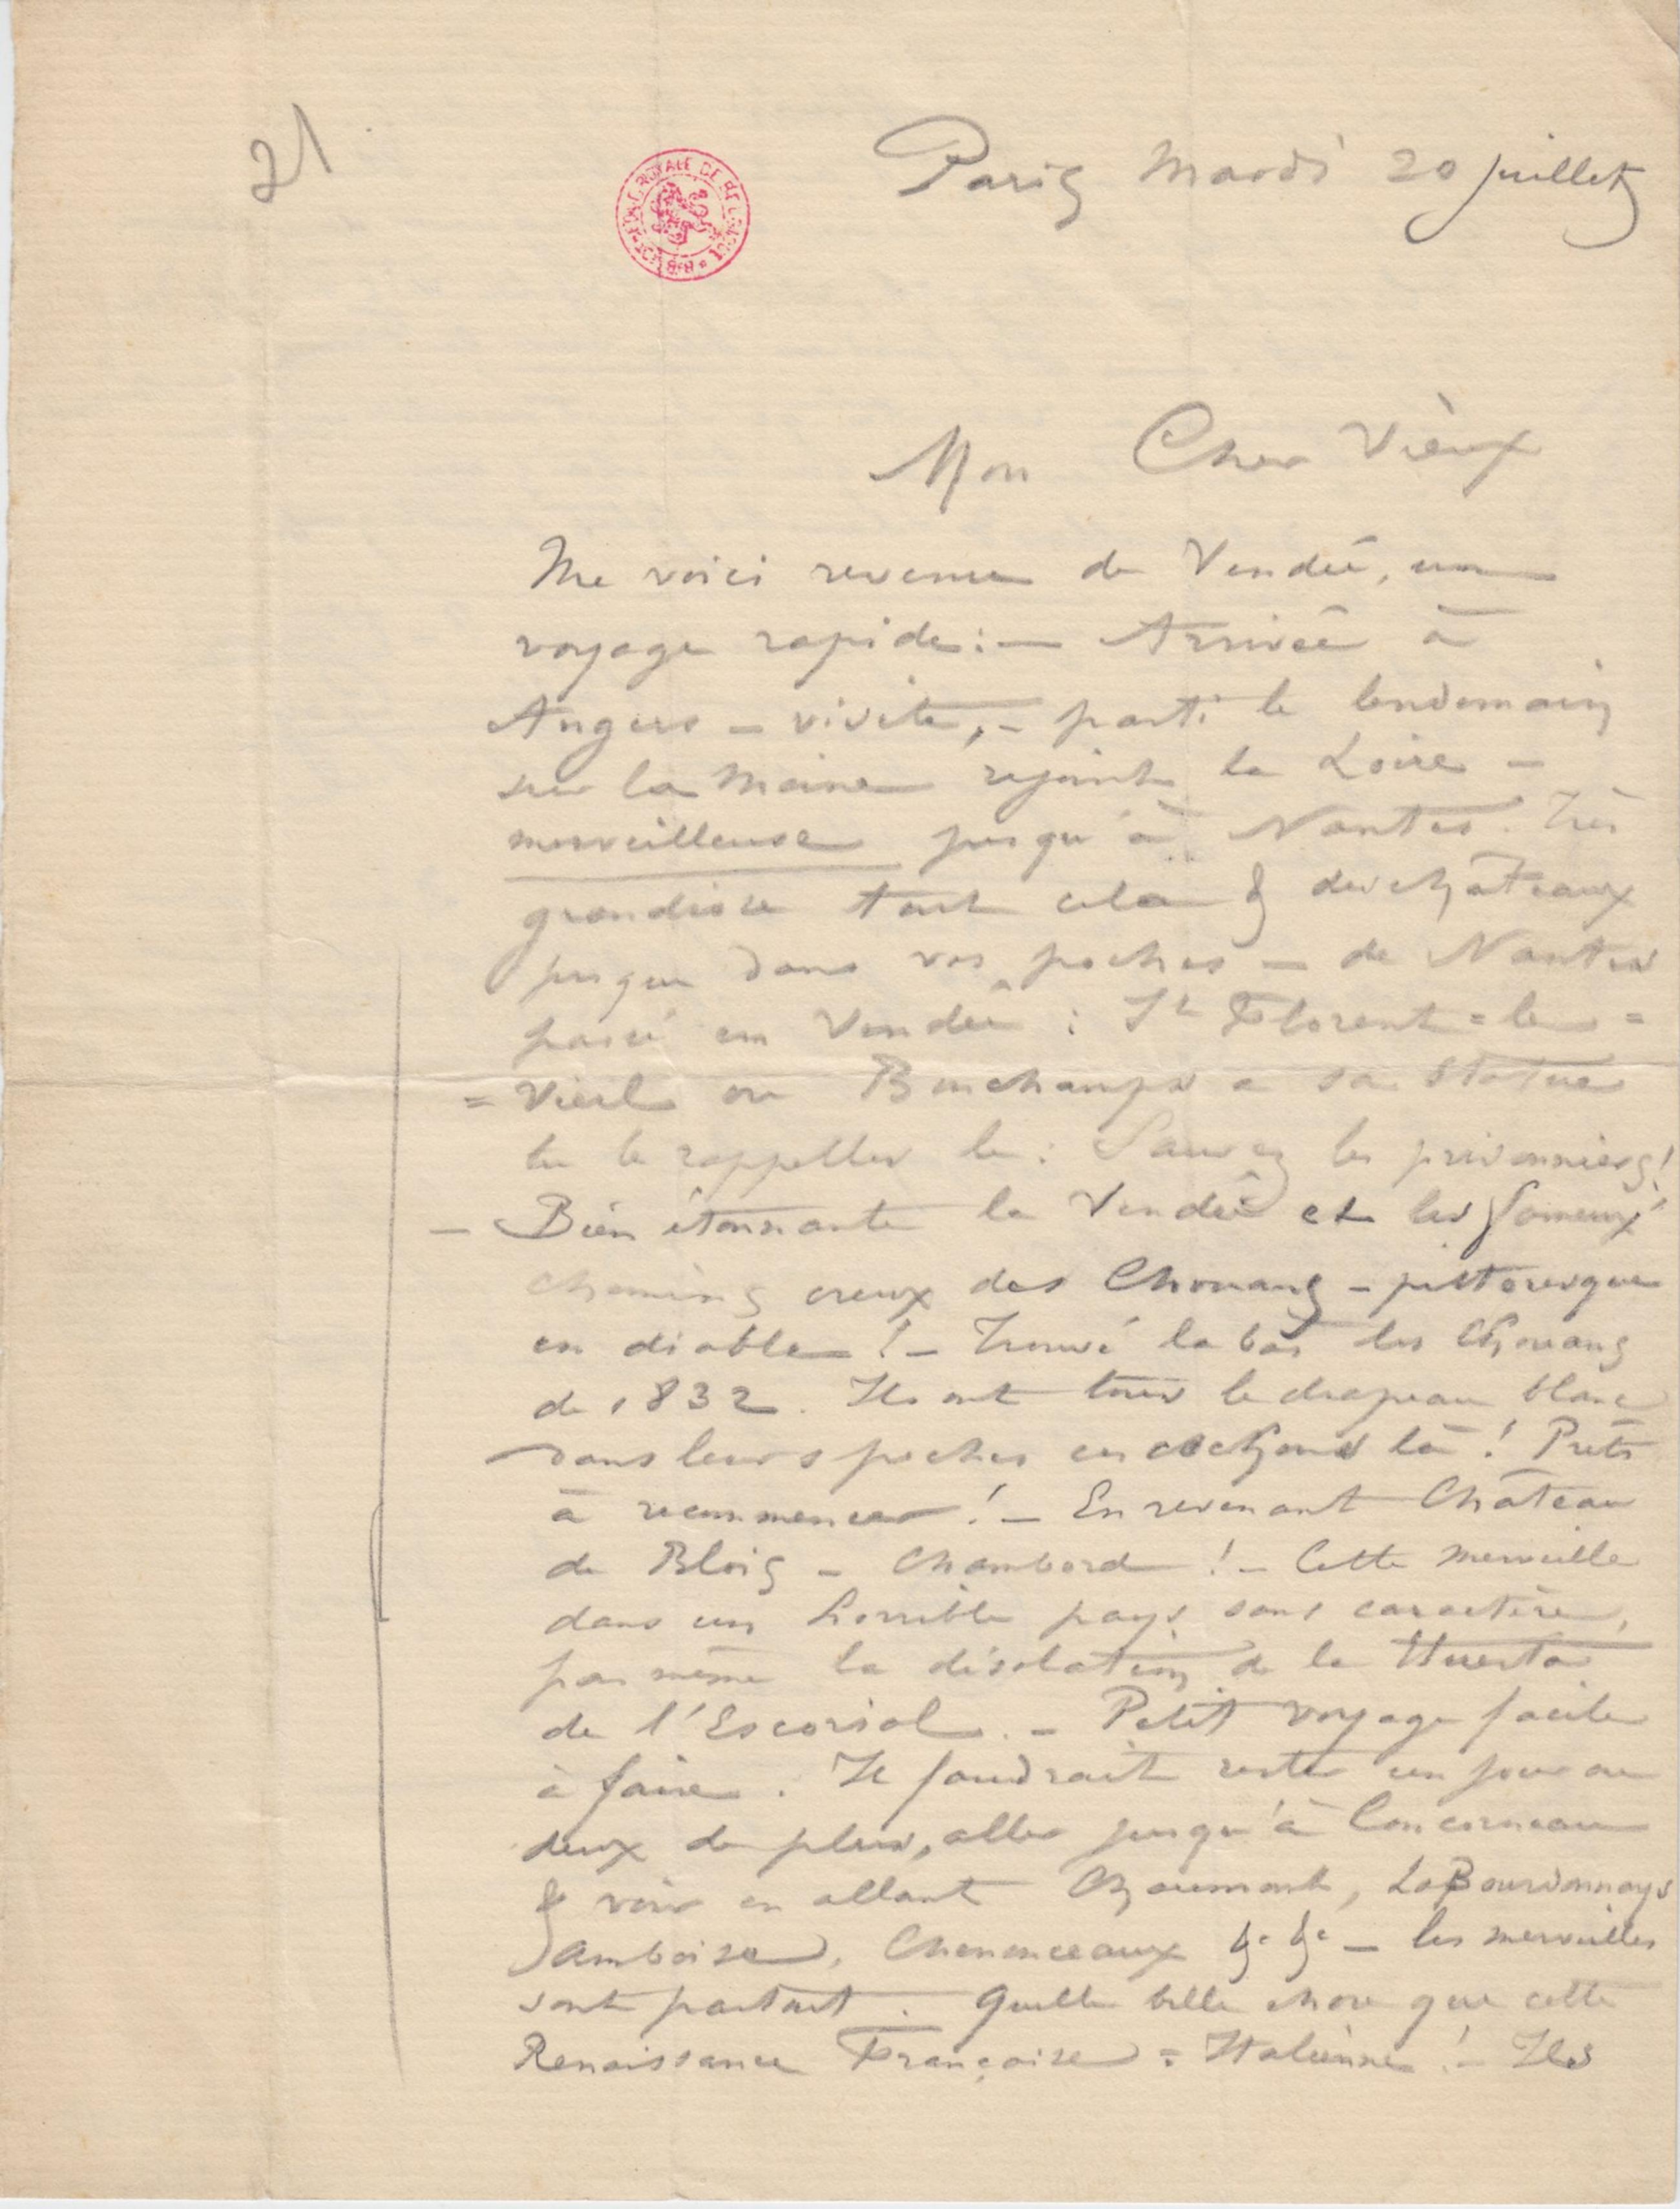 21
BIBLIOTHÈQUE ROYALE DE BELGIQUE
Paris Mardi 20 juillet
Mon Cher Vieux
Me voici revenu de Vendée, un
voyage rapide : — Arrivée à
Angers – visite, – parti le lendemain
sur la Maine rejoint la Loire –
merveilleuse jusqu'à Nantes. Très
grandiose tout cela & des châteaux
jusque dans vos poches – de Nantes
passé en Vendée : St Florent = le =
= Vieil ou Bonchamps a sa statue
tu te rappelles le : Sauvez les prisonniers !
– Bien étonnante la Vendée et les fameux
chemins creux des Chouans – pittoresque
en diable ! – Trouvé la bas des Chouans
de 1832. Ils ont tous le drapeau blanc
dans leurs poches ces cochons là ! Prêts
à recommencer ! – En revenant Château
de Blois – Chambord ! – Cette merveille
dans un horrible pays sans caractère,
pas même la désolation de la Huerta
de l'Escorial. – Petit voyage facile
à faire. Il faudrait rester un jour ou
deux de plus, aller jusqu'à Concarneau
& voir en allant Chaumont, La Bourdonnays
Amboise, Chenonceaux &c &c – les merveilles
sont partout. Quelle belle chose que cette
Renaissance Française = Italienne ! – Ils